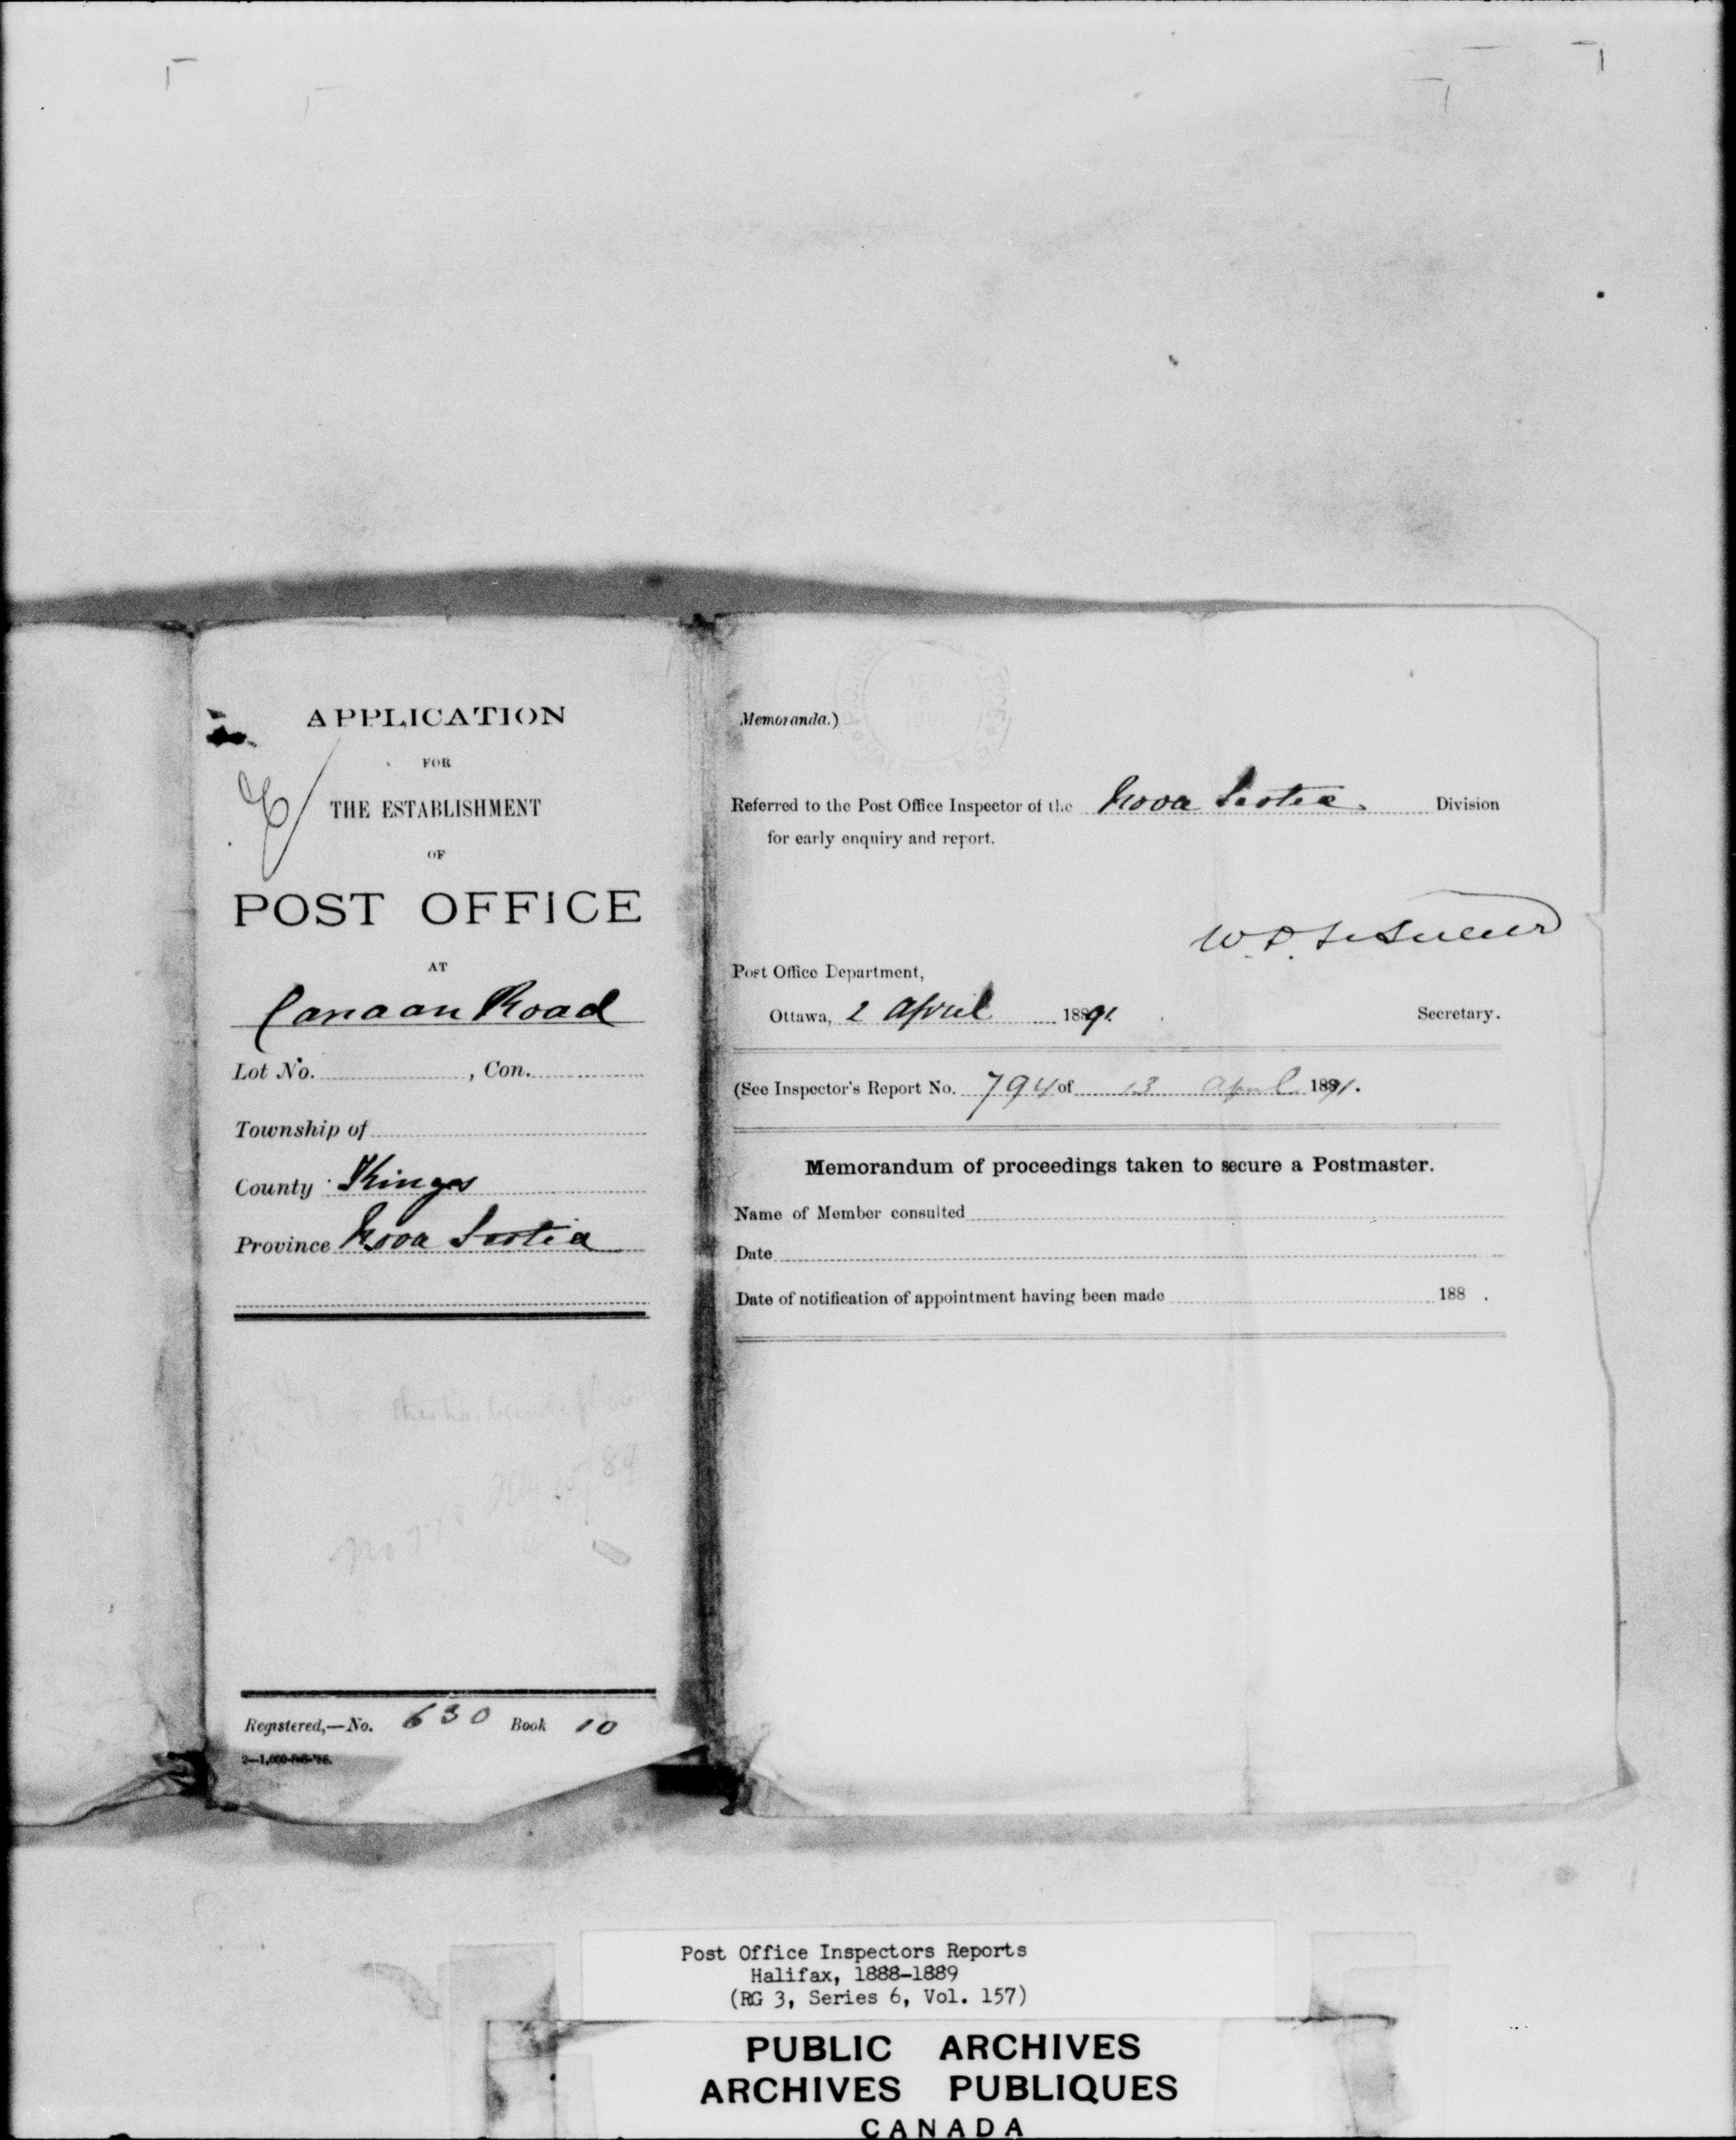 APPLICATION
FOR
THE ESTABLISHMENT
OF
POST OFFICE
AT
Canaan Road
Lot No. , Con.
Township of
County Kings
Province Nova Scotia
Registered,—No. 630 Book 10
2—1,000-Feb-'88.
Memoranda.)
Referred to the Post Office Inspector of the Nova Scotia Division
for early enquiry and report.
W. D. LeSueur
Post Office Department,
Ottawa, 2 April 1891. Secretary.
(See Inspector's Report No. 794 of 13 April 1891.
Memorandum of proceedings taken to secure a Postmaster.
Name of Member consulted
Date
Date of notification of appointment having been made 188 .
Post Office Inspectors Reports
Halifax, 1888-1889
(RG 3, Series 6, Vol. 157)
PUBLIC ARCHIVES
ARCHIVES PUBLIQUES
CANADA